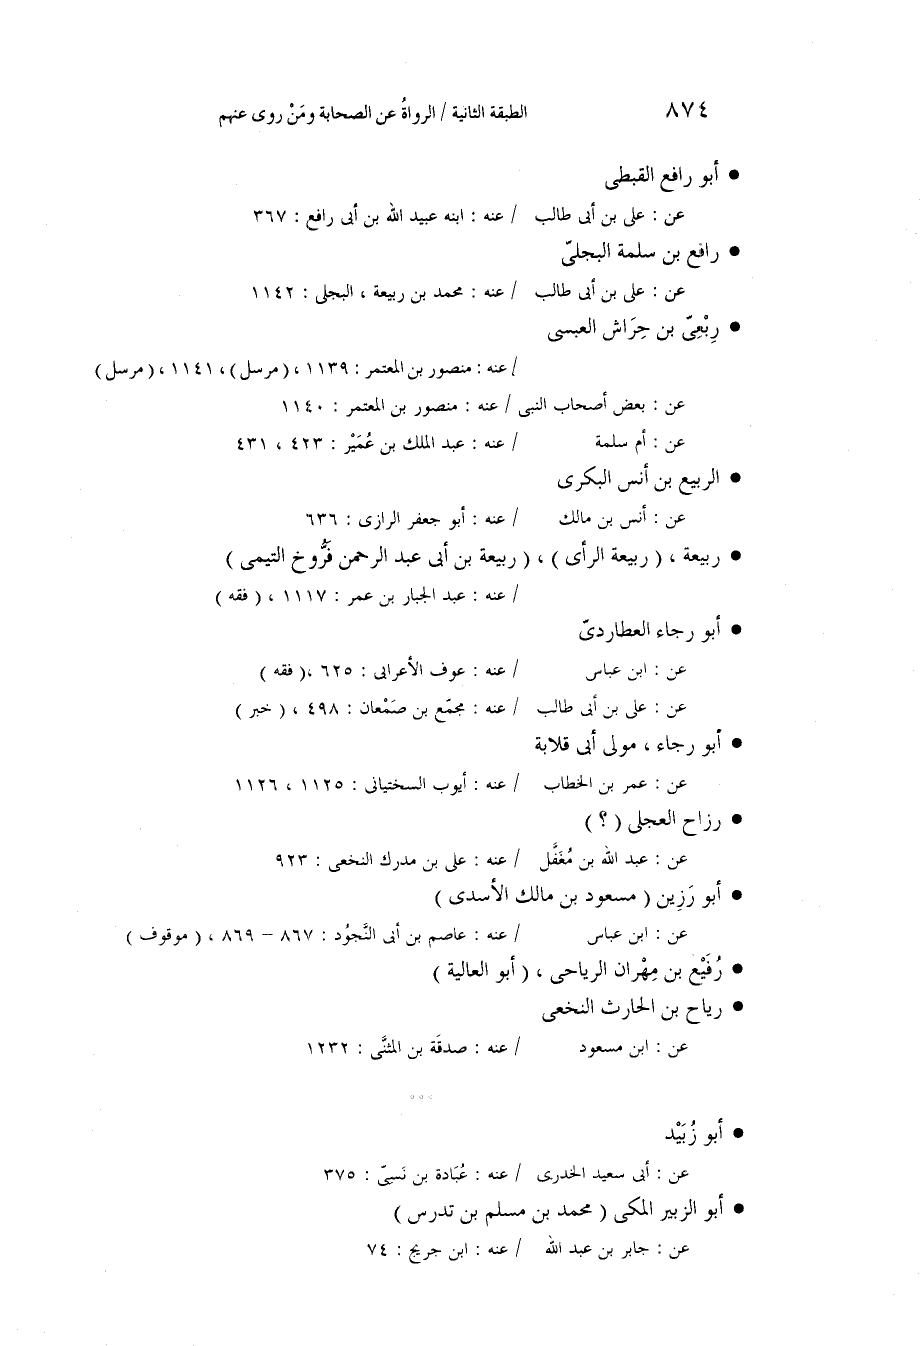 ٨٧٤ الطبقة الثانية / الرواةُ عن الصحابة ومَنْ روى عنهم
● أبو رافع القبطى
عن : على بن أبى طالب / عنه : ابنه عبيد الله بن أبى رافع : ٣٦٧
● رافع بن سلمة البجلىّ
عن : على بن أبى طالب / عنه : محمد بن ربيعة ، البجلى : ١١٤٢
● رِبْعِىّ بن حِرَاش العبسى
/ عنه : منصور بن المعتمر : ١١٣٩ ، ( مرسل ) ، ١١٤١ ، ( مرسل )
عن : بعض أصحاب النبى / عنه : منصور بن المعتمر : ١١٤٠
عن : أم سلمة / عنه : عبد الملك بن عُمَيْر : ٤٢٣ ، ٤٣١
● الربيع بن أنس البكرى
عن : أنس بن مالك / عنه : أبو جعفر الرازى : ٦٣٦
● ربيعة ، ( ربيعة الرأى ) ، ( ربيعة بن أبى عبد الرحمن فَرُّوخ التيمى )
/ عنه : عبد الجبار بن عمر : ١١١٧ ، ( فقه )
● أبو رجاء العطاردىّ
عن : ابن عباس / عنه : عوف الأعرابى : ٦٢٥ ، ( فقه )
عن : على بن أبى طالب / عنه : مجمّع بن صَمْعان : ٤٩٨ ، ( خبر )
● أبو رجاء ، مولى أبى قلابة
عن : عمر بن الخطاب / عنه : أيوب السختيانى : ١١٢٥ ، ١١٢٦
● رزاح العجلى ( ؟ )
عن : عبد الله بن مُغَفَّل / عنه : على بن مدرك النخعى : ٩٢٣
● أبو رَزِين ( مسعود بن مالك الأسدى )
عن : ابن عباس / عنه : عاصم بن أبى النَّجوُد : ٨٦٧ – ٨٦٩ ، ( موقوف )
● رُفَيْع بن مِهْران الرياحى ، ( أبو العالية )
● رياح بن الحارث النخعى
عن : ابن مسعود / عنه : صدقَة بن المثنَّى : ١٢٣٢
● أبو زُبَيْد
عن : أبى سعيد الخدرى / عنه : عُبَادة بن نَسىّ : ٣٧٥
● أبو الزبير المكى ( محمد بن مسلم بن تدرس )
عن : جابر بن عبد الله / عنه : ابن جريج : ٧٤